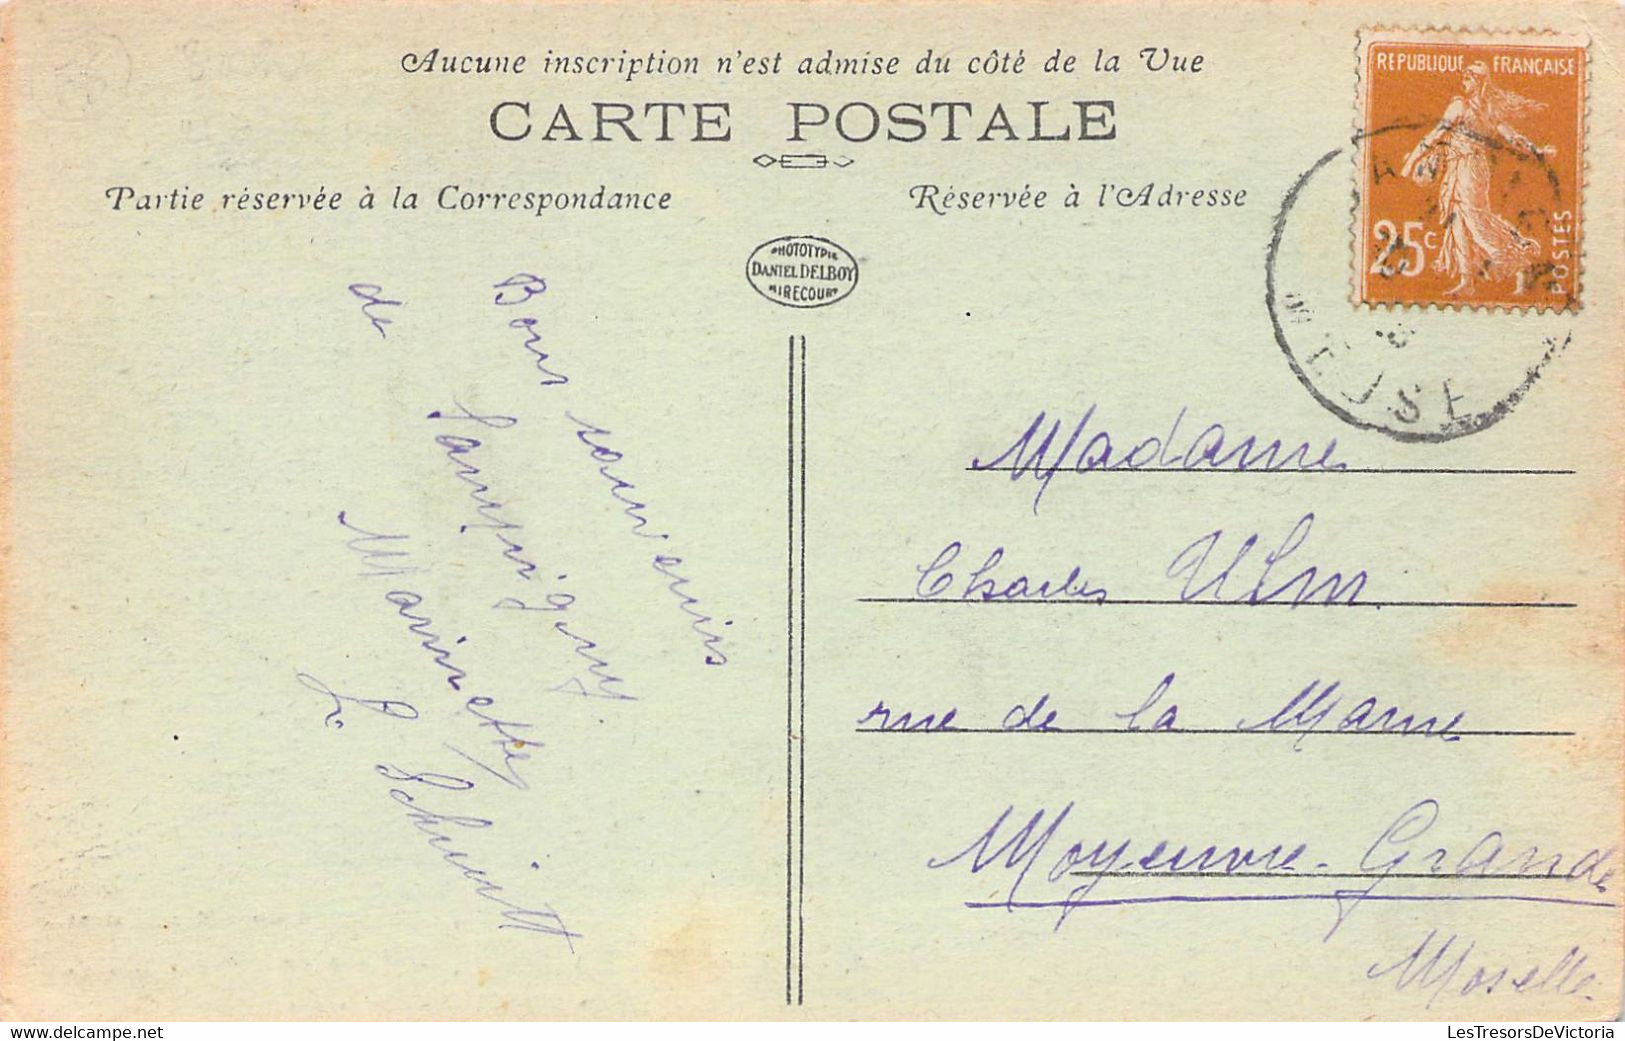 Aucune inscription n'est admise du côté de la Vue
CARTE POSTALE
Partie réservée à la Correspondance
Réservée à l'Adresse
PHOTOTYPIE
DANIEL DELBOY
MIRECOURT
REPUBLIQUE FRANÇAISE
25c
POSTES
MEUSE
Bons souvenirs
de Sampigny.
Marinette
Schmitt
Madame
Charles Ulm.
rue de la Marne
Moyeuvre-Grande
Moselle.
delcampe.net
LesTresorsDeVictoria